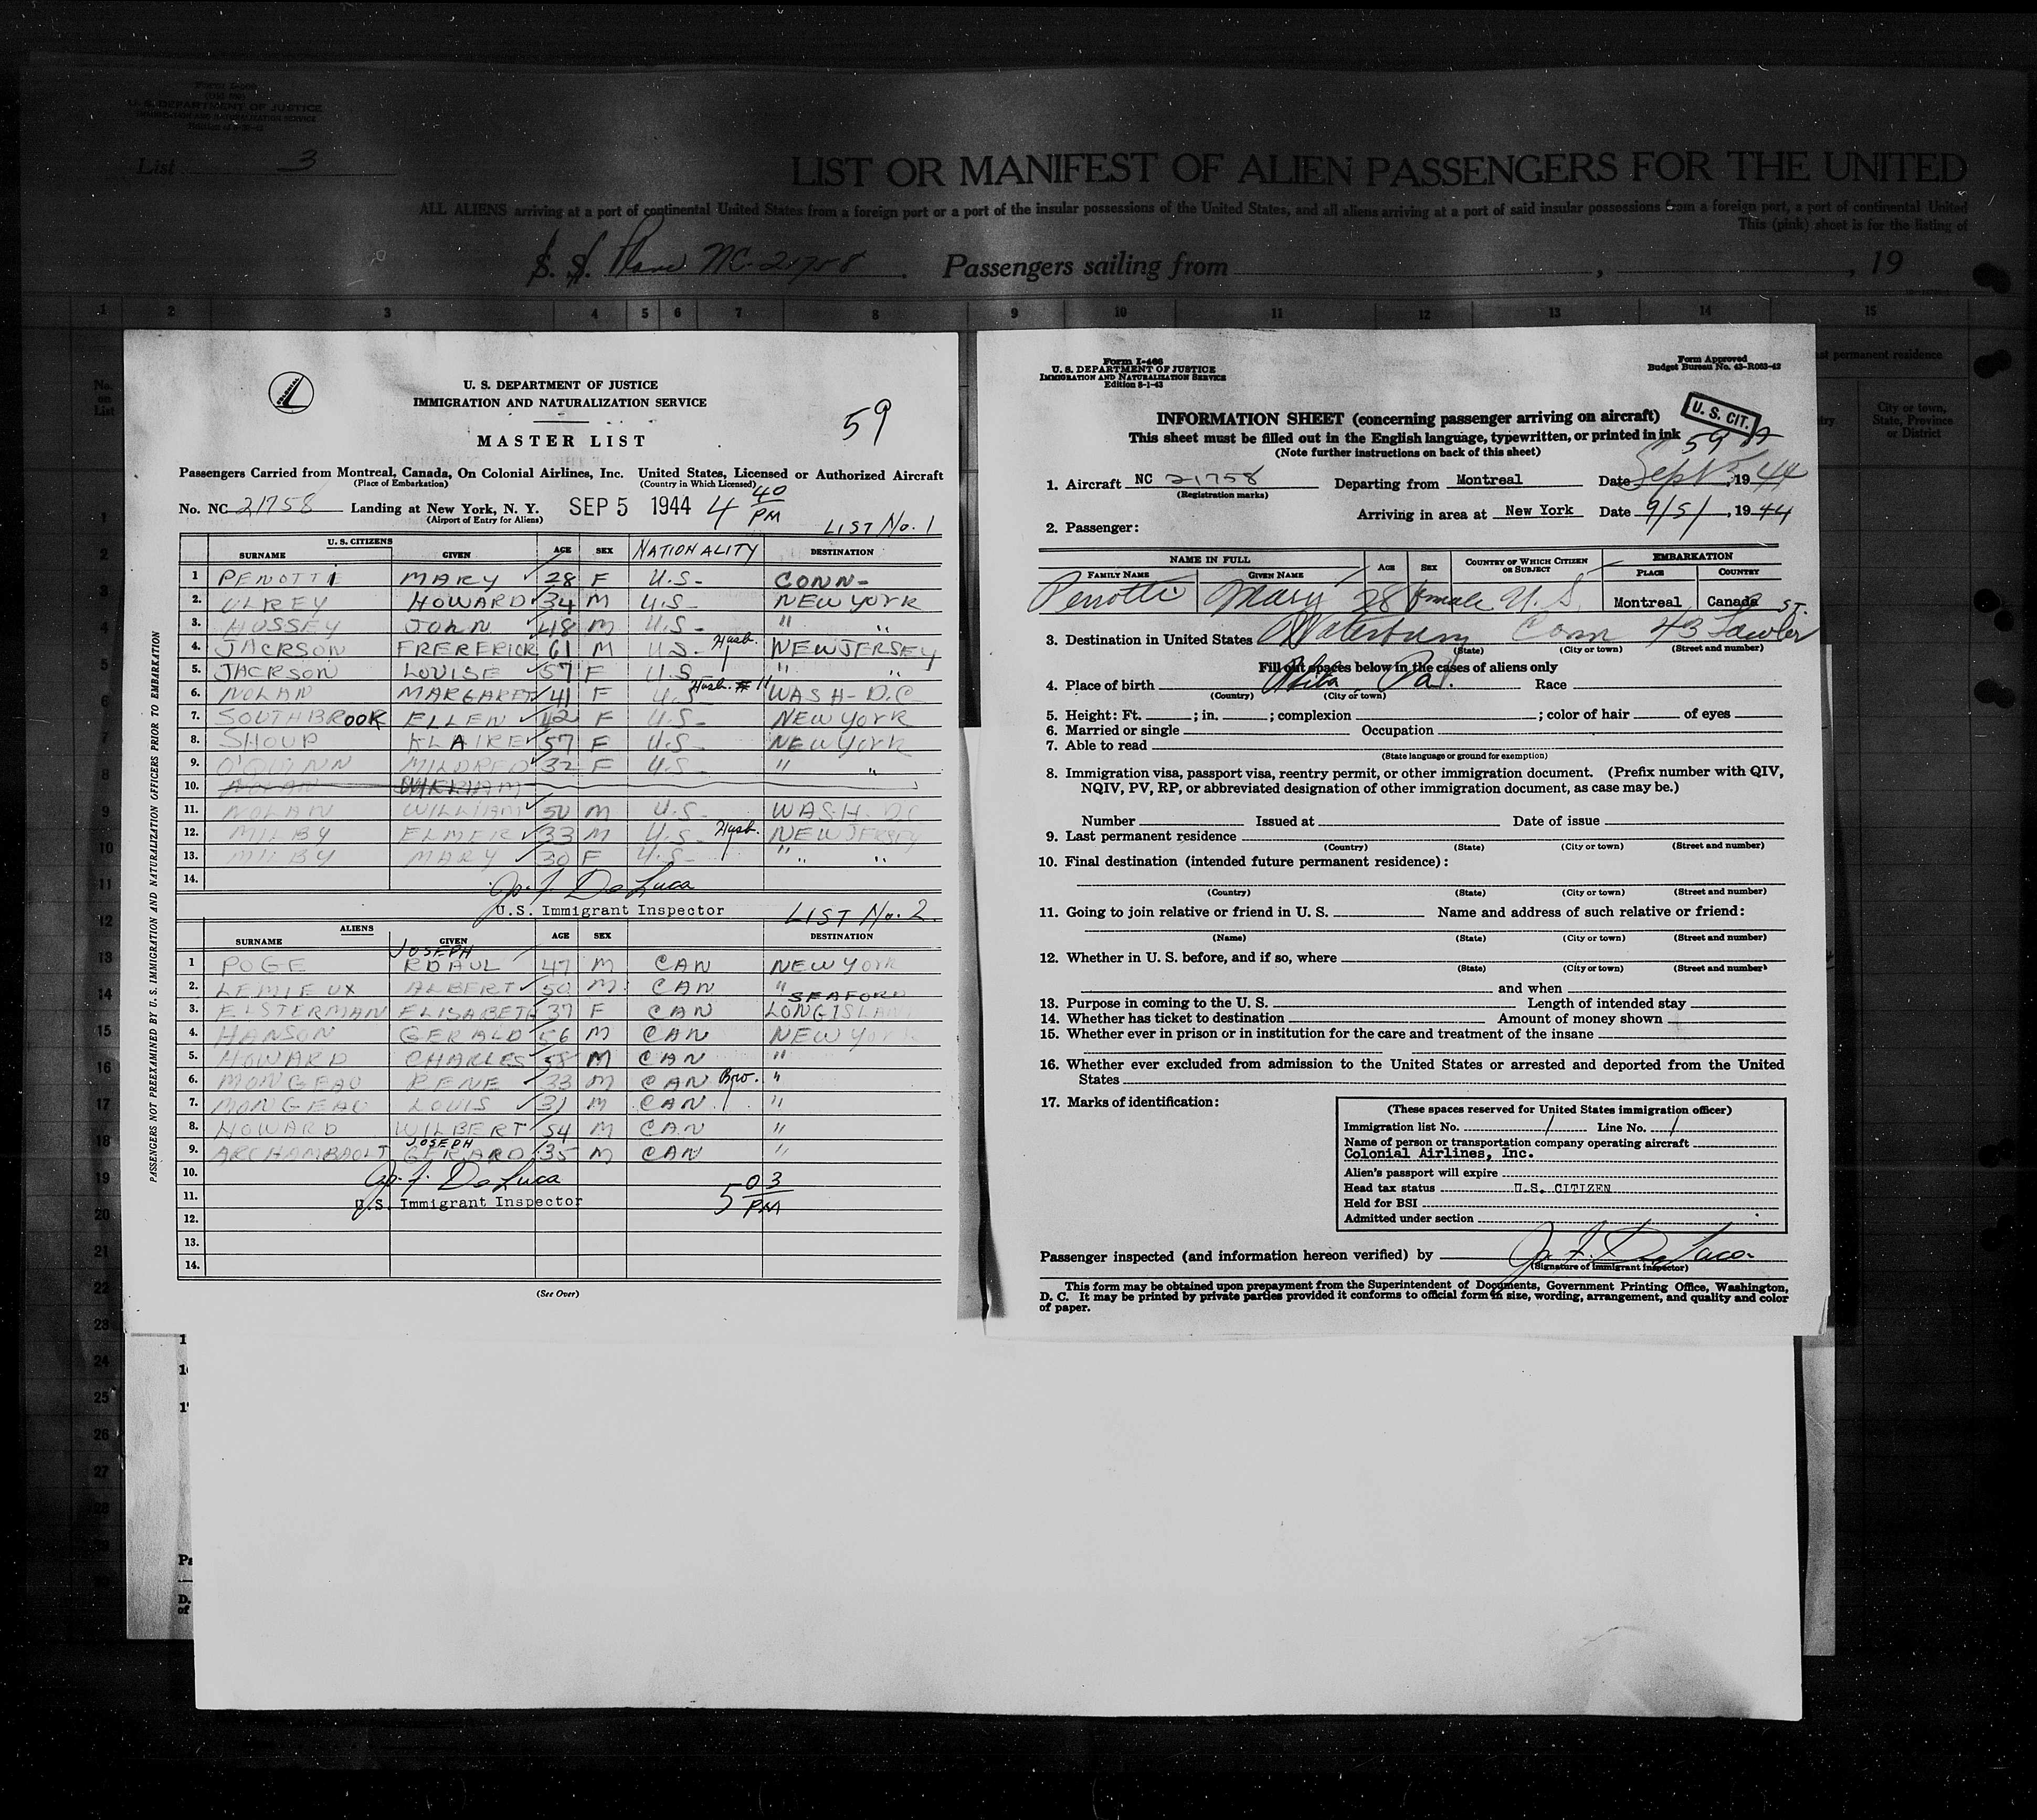 Form I-466
(Old 500)
U. S. DEPARTMENT OF JUSTICE
IMMIGRATION AND NATURALIZATION SERVICE
List 3
LIST OR MANIFEST OF ALIEN PASSENGERS FOR THE UNITED
ALL ALIENS arriving at a port of continental United States from a foreign port or a port of the insular possessions of the United States, and all aliens arriving at a port of said insular possessions from a foreign port, a port of continental United
This (pink) sheet is for the listing of
S. S. Plane NC-21758 . Passengers sailing from , , 19
1 2 3 4 5 6 7 8 9 10 11 12 13 14 15
No. on List
last permanent residence
City or town, State, Province or District
U. S. DEPARTMENT OF JUSTICE
IMMIGRATION AND NATURALIZATION SERVICE
59
MASTER LIST
Passengers Carried from Montreal, Canada, On Colonial Airlines, Inc. United States, Licensed or Authorized Aircraft
(Place of Embarkation) (Country in Which Licensed)
No. NC 21758 Landing at New York, N. Y. SEP 5 1944 4 40 PM
(Airport of Entry for Aliens)
LIST No. 1
U. S. CITIZENS
SURNAME GIVEN AGE SEX NATIONALITY DESTINATION
1 PENOTTI MARY 28 F U.S- CONN-
2. ULREY HOWARD 34 M U.S- NEW YORK
3. HUSSEY JOHN 48 M U.S- " "
4. JACKSON FRERERICK 61 M U.S- Husb. NEW JERSEY
5. JACKSON LOUISE 57 F U.S " "
6. NOLAN MARGARET 41 F U.S Husb. # 11 WASH- D.C
7. SOUTHBROOK ELLEN 42 F U.S- NEW YORK
8. SHOUP KLAIRE 57 F U.S- NEW YORK
9. O'QUINN MILDRED 32 F U.S " "
10. NOLAN
11. NOLAN WILLIAM 50 M U.S- WASH. DC
12. MILBY ELMER 33 M U.S- Husb. NEW JERSEY
13. MILBY MARY 30 F U.S- " " "
14.
Jos. F. DeLuca
U.S. Immigrant Inspector
LIST No. 2.
ALIENS
SURNAME GIVEN AGE SEX DESTINATION
1 POGE JOSEPH RDAUL 47 M CAN NEW YORK
2. LEMIEUX ALBERT 50 M CAN "
3. ELSTERMAN ELISABETH 37 F CAN SEAFORD LONG ISLAND
4. HANSON GERALD 56 M CAN NEW YORK
5. HOWARD CHARLES 58 M CAN "
6. MONGEAU RENE 33 M CAN Bro. "
7. MONGEAU LOUIS 31 M CAN "
8. HOWARD WILBERT 54 M CAN "
9. ARCHAMBAULT JOSEPH GERARD 35 M CAN "
10.
Jos. F. DeLuca
11.
U.S. Immigrant Inspector
5 03 PM
12.
13.
14.
(See Over)
PASSENGERS NOT PREEXAMINED BY U. S. IMMIGRATION AND NATURALIZATION OFFICERS PRIOR TO EMBARKATION
Form I-466
U. S. DEPARTMENT OF JUSTICE
IMMIGRATION AND NATURALIZATION SERVICE
Edition 8-1-43
Form Approved
Budget Bureau No. 43-R063-42
U. S. CIT.
INFORMATION SHEET (concerning passenger arriving on aircraft)
This sheet must be filled out in the English language, typewritten, or printed in ink
59
(Note further instructions on back of this sheet)
1. Aircraft NC 21758 Departing from Montreal Date Sept 5, 1944
(Registration marks)
Arriving in area at New York Date 9/5/, 1944
2. Passenger:
NAME IN FULL AGE SEX COUNTRY OF WHICH CITIZEN OR SUBJECT EMBARKATION
FAMILY NAME GIVEN NAME PLACE COUNTRY
Perrotti Mary 28 female U. S. Montreal Canada
3. Destination in United States Waterbury Conn 43 Lawler ST.
(State) (City or town) (Street and number)
Fill out spaces below in the cases of aliens only
4. Place of birth Phila Pa. Race
(Country) (City or town)
5. Height: Ft. ; in. ; complexion ; color of hair of eyes
6. Married or single Occupation
7. Able to read
(State language or ground for exemption)
8. Immigration visa, passport visa, reentry permit, or other immigration document. (Prefix number with QIV,
NQIV, PV, RP, or abbreviated designation of other immigration document, as case may be.)
Number Issued at Date of issue
9. Last permanent residence
(Country) (State) (City or town) (Street and number)
10. Final destination (intended future permanent residence):
(Country) (State) (City or town) (Street and number)
11. Going to join relative or friend in U. S. Name and address of such relative or friend:
(Name) (State) (City or town) (Street and number)
12. Whether in U. S. before, and if so, where
(State) (City or town) (Street and number)
and when
13. Purpose in coming to the U. S. Length of intended stay
14. Whether has ticket to destination Amount of money shown
15. Whether ever in prison or in institution for the care and treatment of the insane
16. Whether ever excluded from admission to the United States or arrested and deported from the United
States
17. Marks of identification:
(These spaces reserved for United States immigration officer)
Immigration list No. 1 Line No. 1
Name of person or transportation company operating aircraft
Colonial Airlines, Inc.
Alien's passport will expire
Head tax status U.S. CITIZEN
Held for BSI
Admitted under section
Passenger inspected (and information hereon verified) by Jos. F. DeLuca
(Signature of immigrant inspector)
This form may be obtained upon prepayment from the Superintendent of Documents, Government Printing Office, Washington,
D. C. It may be printed by private parties provided it conforms to official form in size, wording, arrangement, and quality and color
of paper.